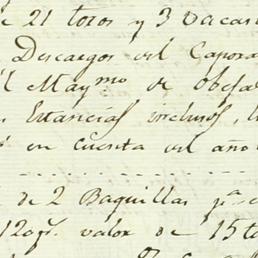 e 21 toros y 3 vacas
Descargos del Capora
El Maymo de Obeja
Estancias inclusos, l
en cuenta del año
de 2 Baquillas pa c
12 qs. valor de 15 to